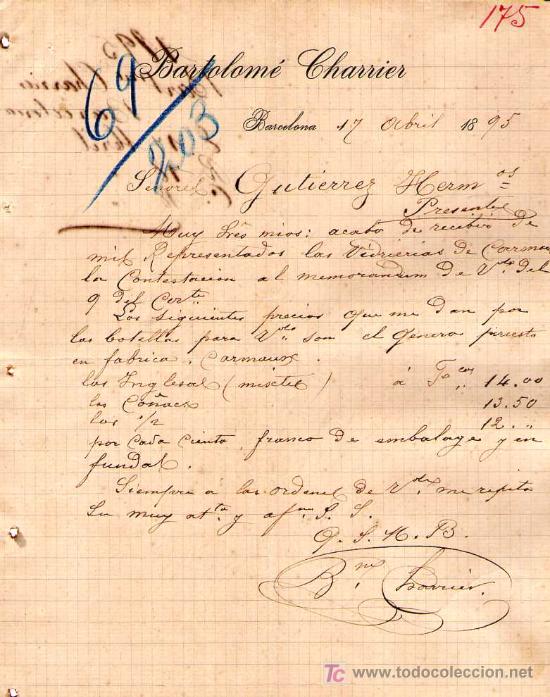 175
Bartolomé Charrier
69
203
Barcelona 17 Abril 1895
Señores Gutierrez Herm os
Presente
Muy Srês mios: acabo de recibir de
mis Representados las Vidrierias de Carmaux
la Contestacion al memorandum de Vdes del
9 del Corte
Los siguientes precios que me dan por
las botellas para Vdes son el genero puesto
en fabrica, Carmaux.
las Inglesas (mixtes) á Fcos 14.00
las Coñacs 13.50
las 1/2 12 "
por cada ciento, franco de embalaje y en
fundas.
Siempre á las ordenes de Vdes me repito
Su muy atto y afmo S. S.
Q. S. M. B.
Bmé Charrier
TC www.todocoleccion.net